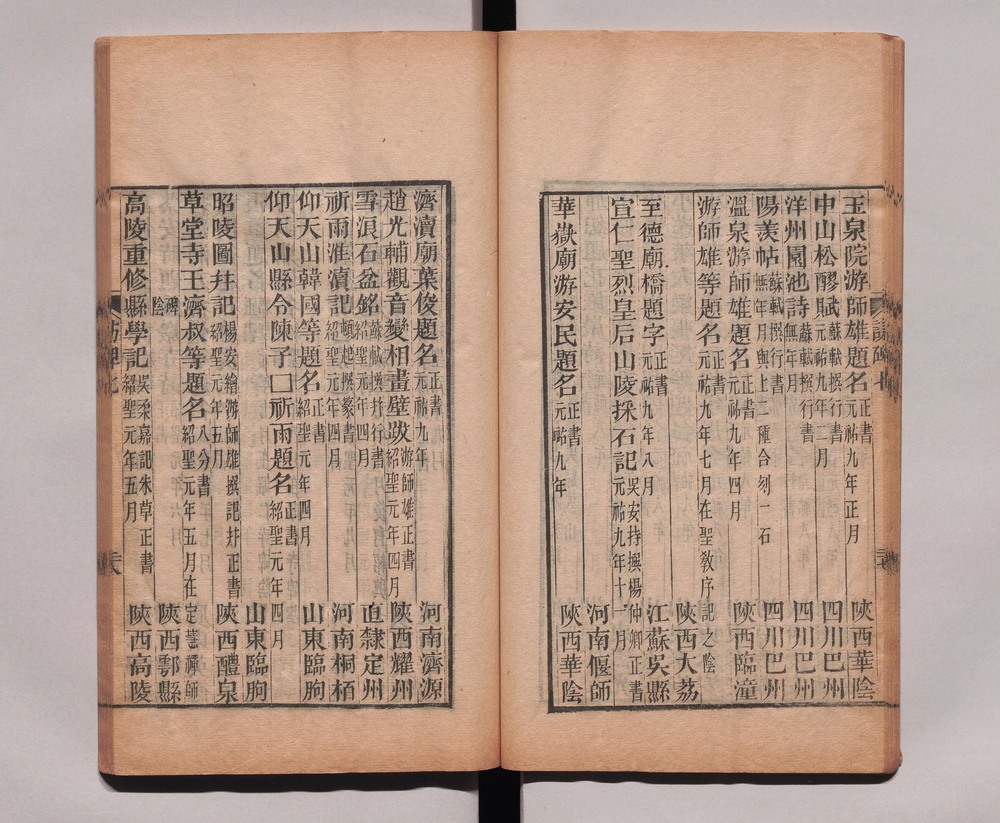 玉泉院游師雄題名 正書 元祐九年正月 陝西華陰
中山松醪賦 蘇軾撰行書 元祐九年二月 四川巴州
洋州園池詩 蘇軾撰行書 無年月 四川巴州
陽羨帖 蘇軾撰行書 無年月與上二種合刻一石 四川巴州
溫泉游師雄題名 正書 元祐九年四月 陝西臨潼
游師雄等題名 正書 元祐九年七月在聖敎序記之陰
陝西大荔
至德廟橋題字 正書 元祐九年八月 江蘇吳縣
宣仁聖烈皇后山陵採石記 吳安持撰楊仲卿正書 元祐九年十一月
河南偃師
華嶽廟游安民題名 正書 元祐九年 陝西華陰
濟瀆廟葉俊題名 正書 元祐九年 河南濟源
趙光輔觀音變相畫壁跋 游師雄正書 紹聖元年四月 陝西耀州
雪浪石盆銘 蘇軾撰并行書 紹聖元年四月 直隸定州
祈雨淮瀆記 撰篆書 紹聖元年四月 河南桐栢
仰天山韓國等題名 正書 紹聖元年四月 山東臨朐
仰天山縣令陳子口祈雨題名 正書 紹聖元年四月
山東臨朐
昭陵圖并記 楊安繪游師雄撰記并正書 紹聖元年五月 陝西醴泉
草堂寺王濟叔等題名 八分書 紹聖元年五月在定慧禪師碑陰
陝西鄠縣
高陵重修縣學記 吳柔嘉記朱草正書 紹聖元年五月 陝西高陵